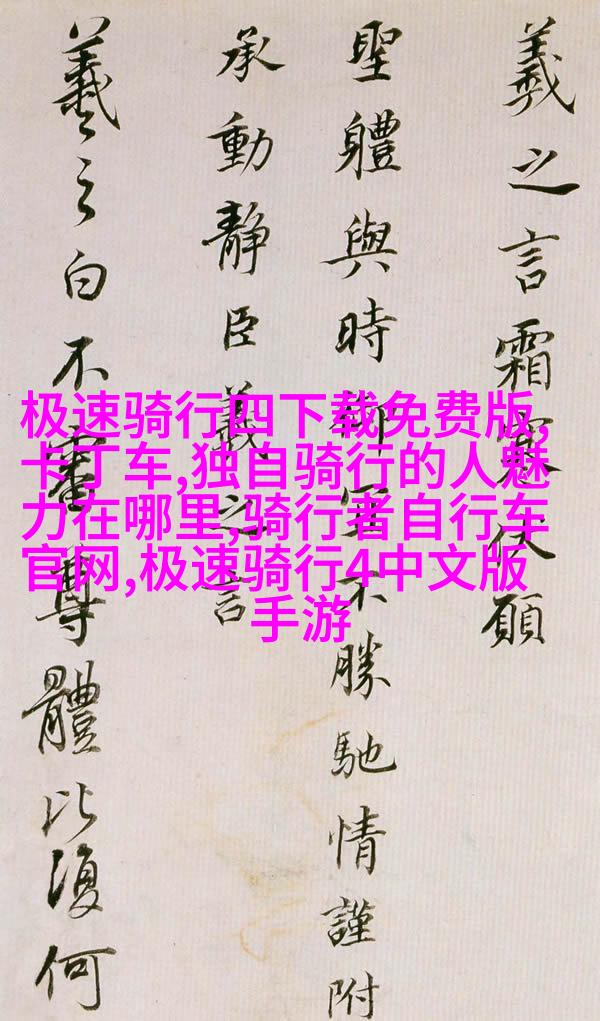 羲之言霜寒伏願
聖體與時御宜不勝馳情謹附
承動靜臣羲之言
羲之白不審尊體比復何
极速骑行四下载免费版,
卡丁车,独自骑行的人魅
力在哪里,骑行者自行车
官网,极速骑行4中文版
手游